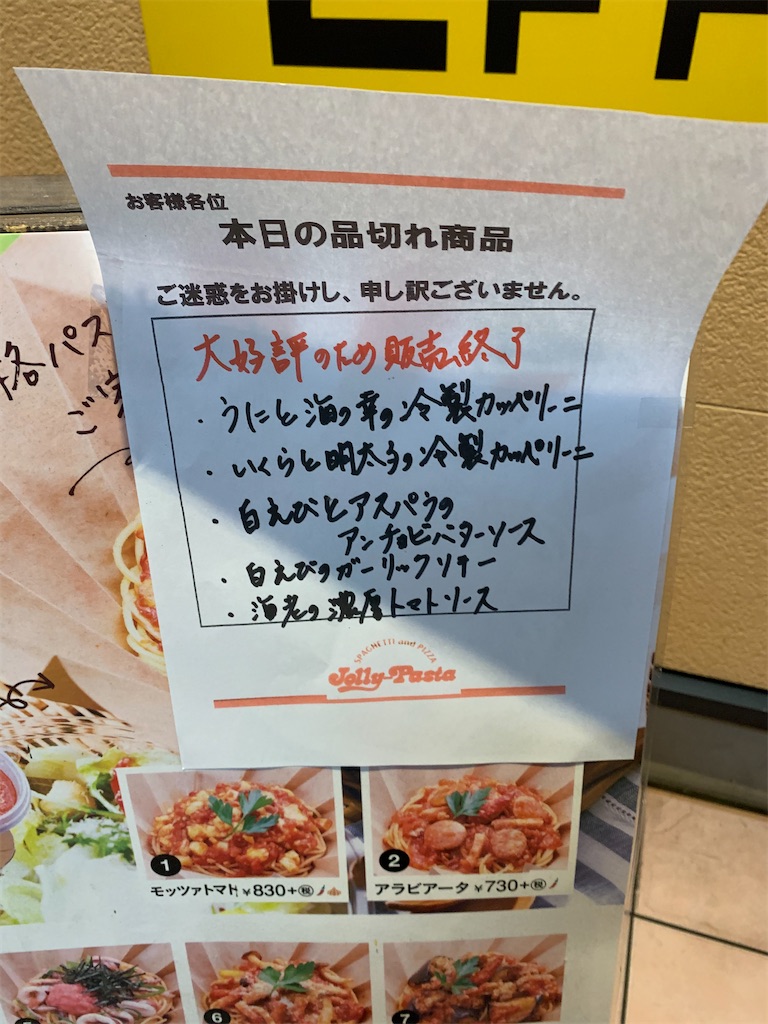 お客様各位
本日の品切れ商品
ご迷惑をお掛けし、申し訳ございません。
大好評のため販売終了
・うにと海の幸の冷製カッペリーニ
・いくらと明太子の冷製カッペリーニ
・白えびとアスパラの
アンチョビバターソース
・白えびのガーリックソテー
・海老の濃厚トマトソース
SPAGHETTI and PIZZA
Jolly-Pasta
格パス
ご
1
モッツァトマト ¥830+税
2
アラビアータ ¥730+税
6
7